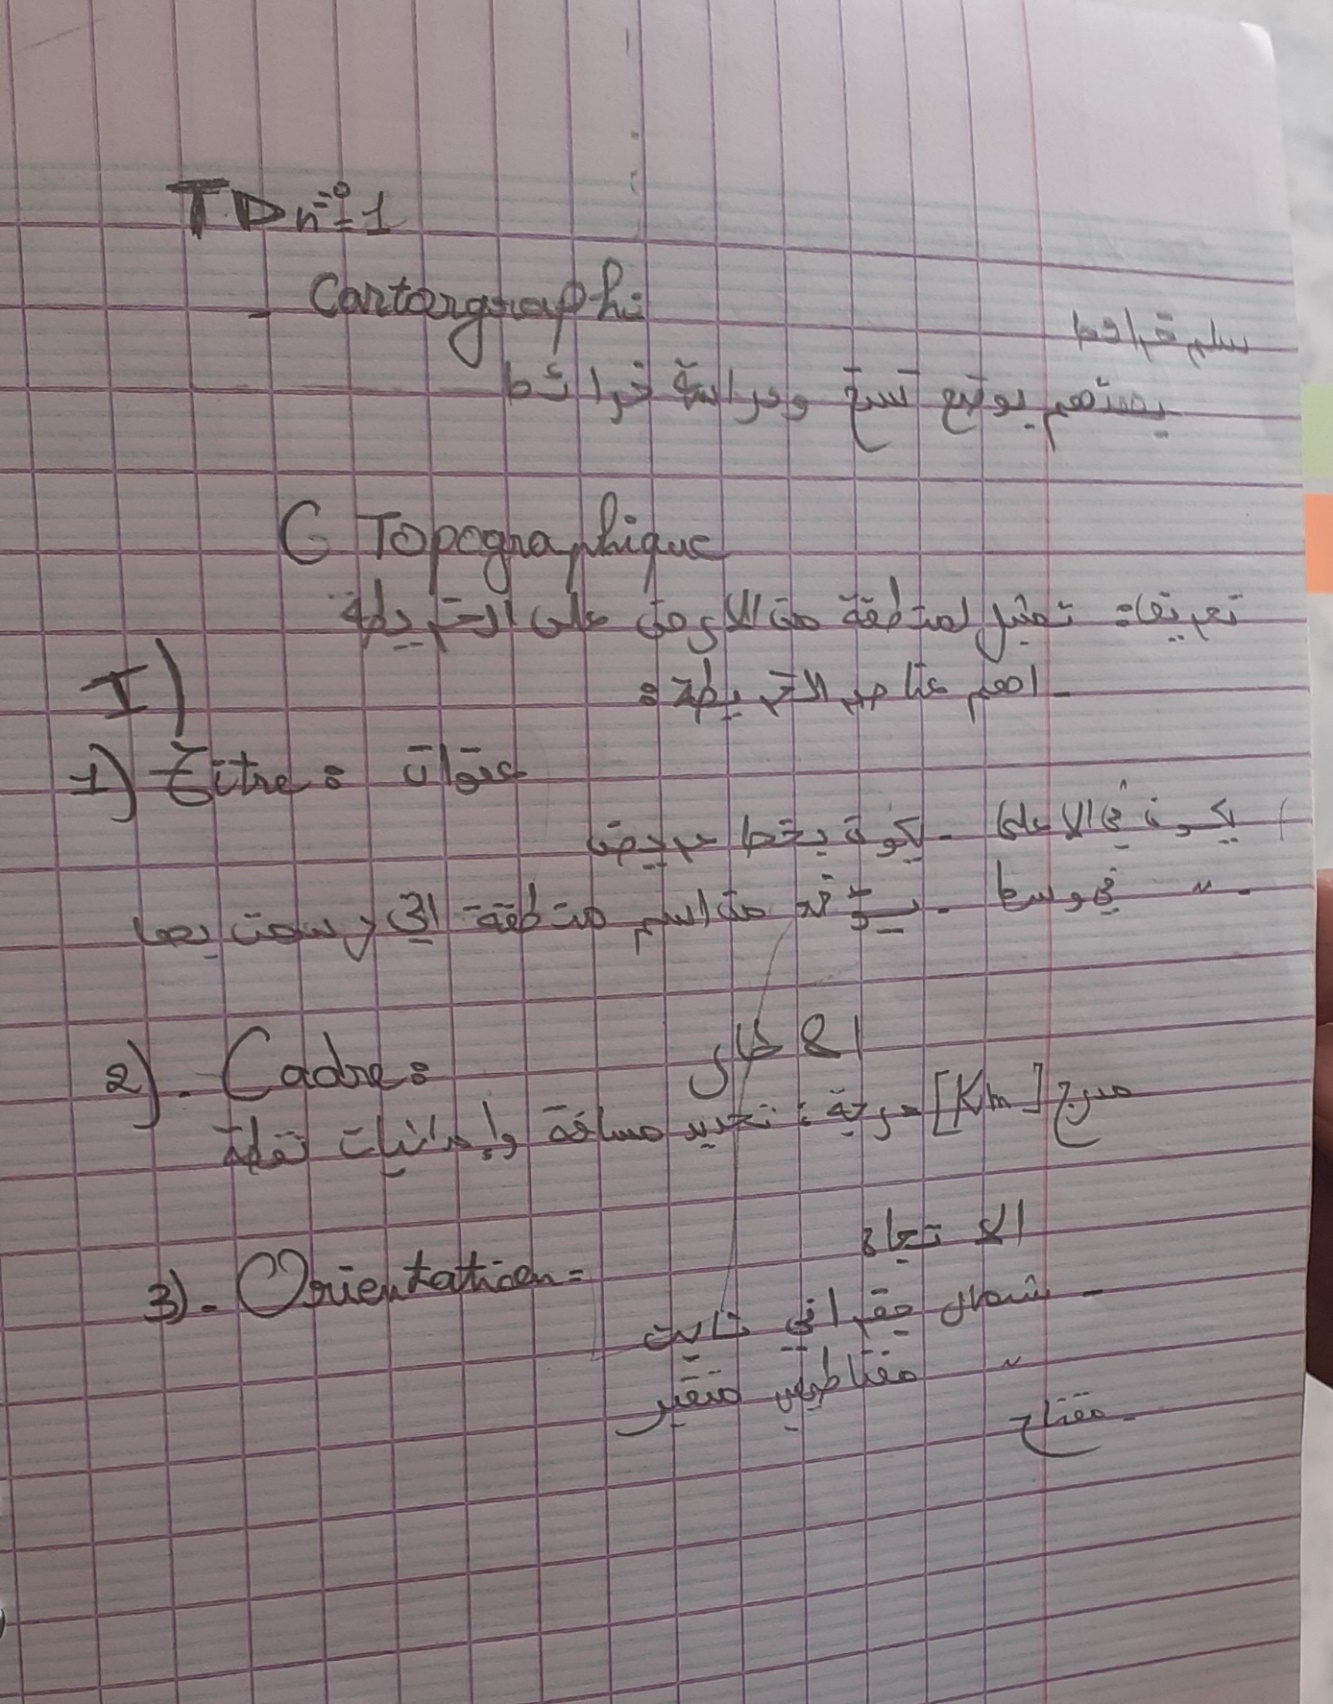 TD n=° 1
- Cartorgraphi
يهتم بوضع نسخ ودراسة خرائط
C Topographique
تعريف: تمثيل لمنطقة من الأرض على الخريطة
I)
- اهم عناصر الخريطة:
1) Titre: عنوان
يكون في الاعلى - يكون بخط عريض
- " في وسط - من اسم منطقة
2) - Cadre: الاطار
[Km] درجة: تحديد مسافة و احداثيات نقطة
3) - Orientation= الاتجاه
- شمال جغرافي ثابت
" مغناطيسي متغير
- مفتاح